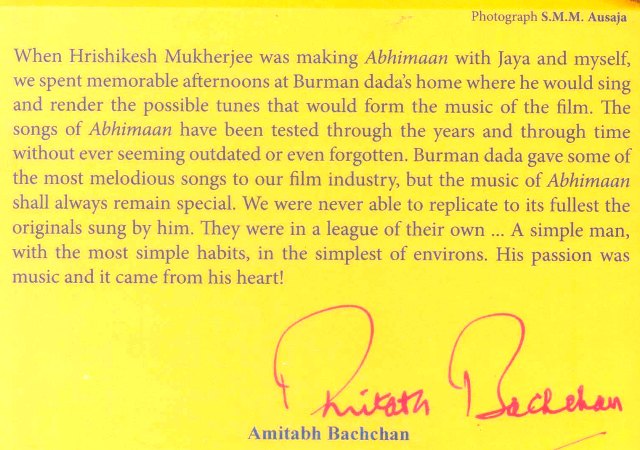 Photograph S.M.M. Ausaja
When Hrishikesh Mukherjee was making Abhimaan with Jaya and myself,
we spent memorable afternoons at Burman dada's home where he would sing
and render the possible tunes that would form the music of the film. The
songs of Abhimaan have been tested through the years and through time
without ever seeming outdated or even forgotten. Burman dada gave some of
the most melodious songs to our film industry, but the music of Abhimaan
shall always remain special. We were never able to replicate to its fullest the
originals sung by him. They were in a league of their own ... A simple man,
with the most simple habits, in the simplest of environs. His passion was
music and it came from his heart!
Bachchan
Amitabh Bachchan